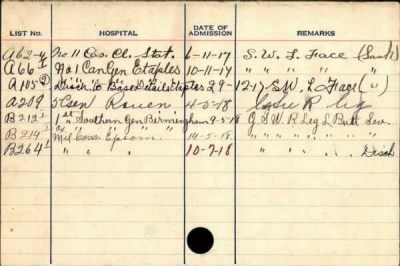 LIST No. HOSPITAL DATE OF ADMISSION REMARKS
A62-4 No 11 Cas. Cl. Stat. 6-11-17 S.W. L Face (Sash)
A66 1 No 1 Can Gen Etaples 10-11-17 " " " "
A105 Disch to Base Details Etaples 29-12-17 S.W. L Face (")
A219 5 Gen Rouen 4-5-18 R Leg
B212 1 1st Southern Gen Birmingham 9-5-18 G.S.W. R Leg L Butt Sev.
B214 1 Mil Conv. Epsom. 14-5-18 " " " " "
B264 1 " " " 10-7-18 " " " " Disch